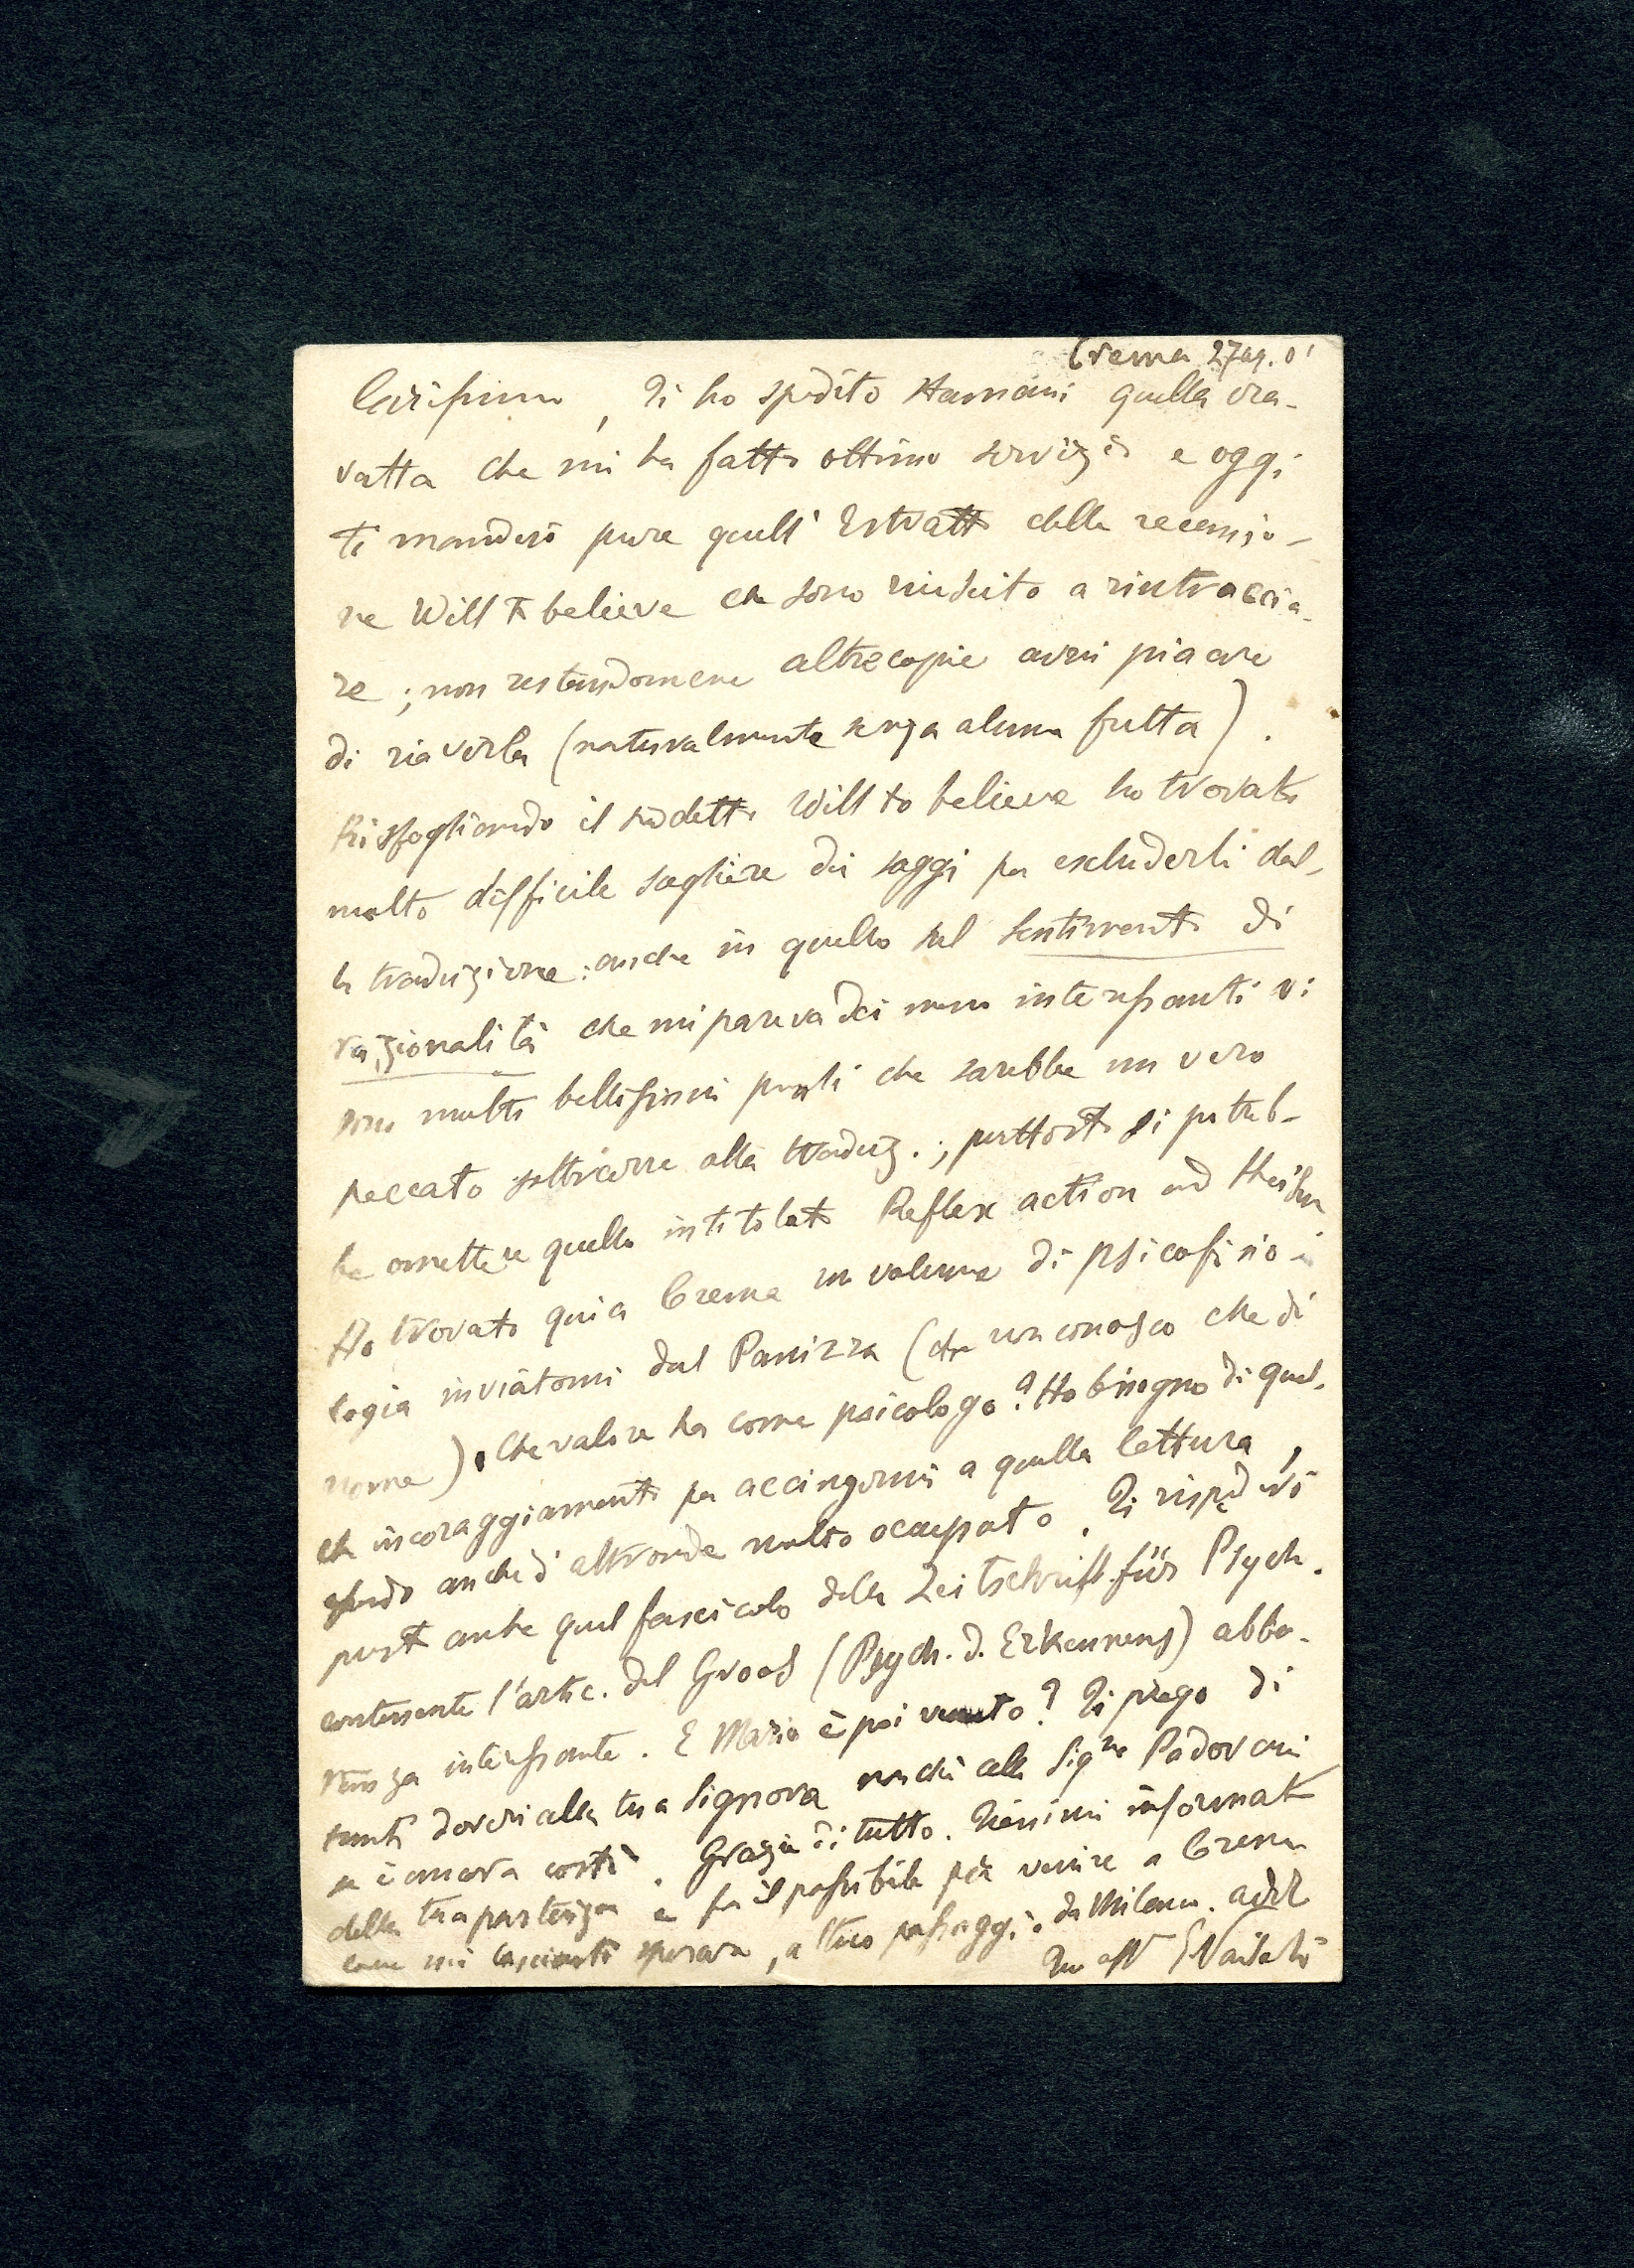 Crema 27 ag. 01
Carissimo, Ti ho spedito stamani quella cra-
vatta che mi ha fatto ottimo servizio e oggi
ti manderò pure quell'Estratto della recensio-
ne Will to believe che sono riuscito a rintraccia-
re; non restandomene altre copie avrei piacere
di riaverla (naturalmente senza alcuna fretta).
Risfogliando il sudetto Will to believe ho trovato
molto difficile scegliere dei saggi per escluderli dal-
la traduzione: anche in quello sul sentimento di
razionalità che mi pareva dei meno interessanti vi
sono molti bellissimi punti che sarebbe un vero
peccato sottrarre alla traduz.; piuttosto si potreb-
be omettere quello intitolato Reflex action and theism
Ho trovato qui a Crema un volume di psicofisio
logia inviatomi dal Panizza (che non conosco che di
nome). Che valore ha come psicologo? Ho bisogno di qual-
che incoraggiamento per accingermi a quella lettura,
essendo anche d'altronde molto occupato. Ti rispedirò
presto anche quel fascicolo della Zeitschrift für Psych.
contenente l'artic. del Groos (Psych. d. Erkennens) abba-
stanza interessante. E Mario è poi venuto? Ti prego di
tanti doveri alla tua Signora nonchè alla Sig.na Padovani
se è ancora costì. Grazie di tutto. Tienimi informato
della tua partenza e fa il possibile per venire a Crema
come mi lasciasti sperare, al tuo passaggio da Milano. add
Tuo aff GVailati